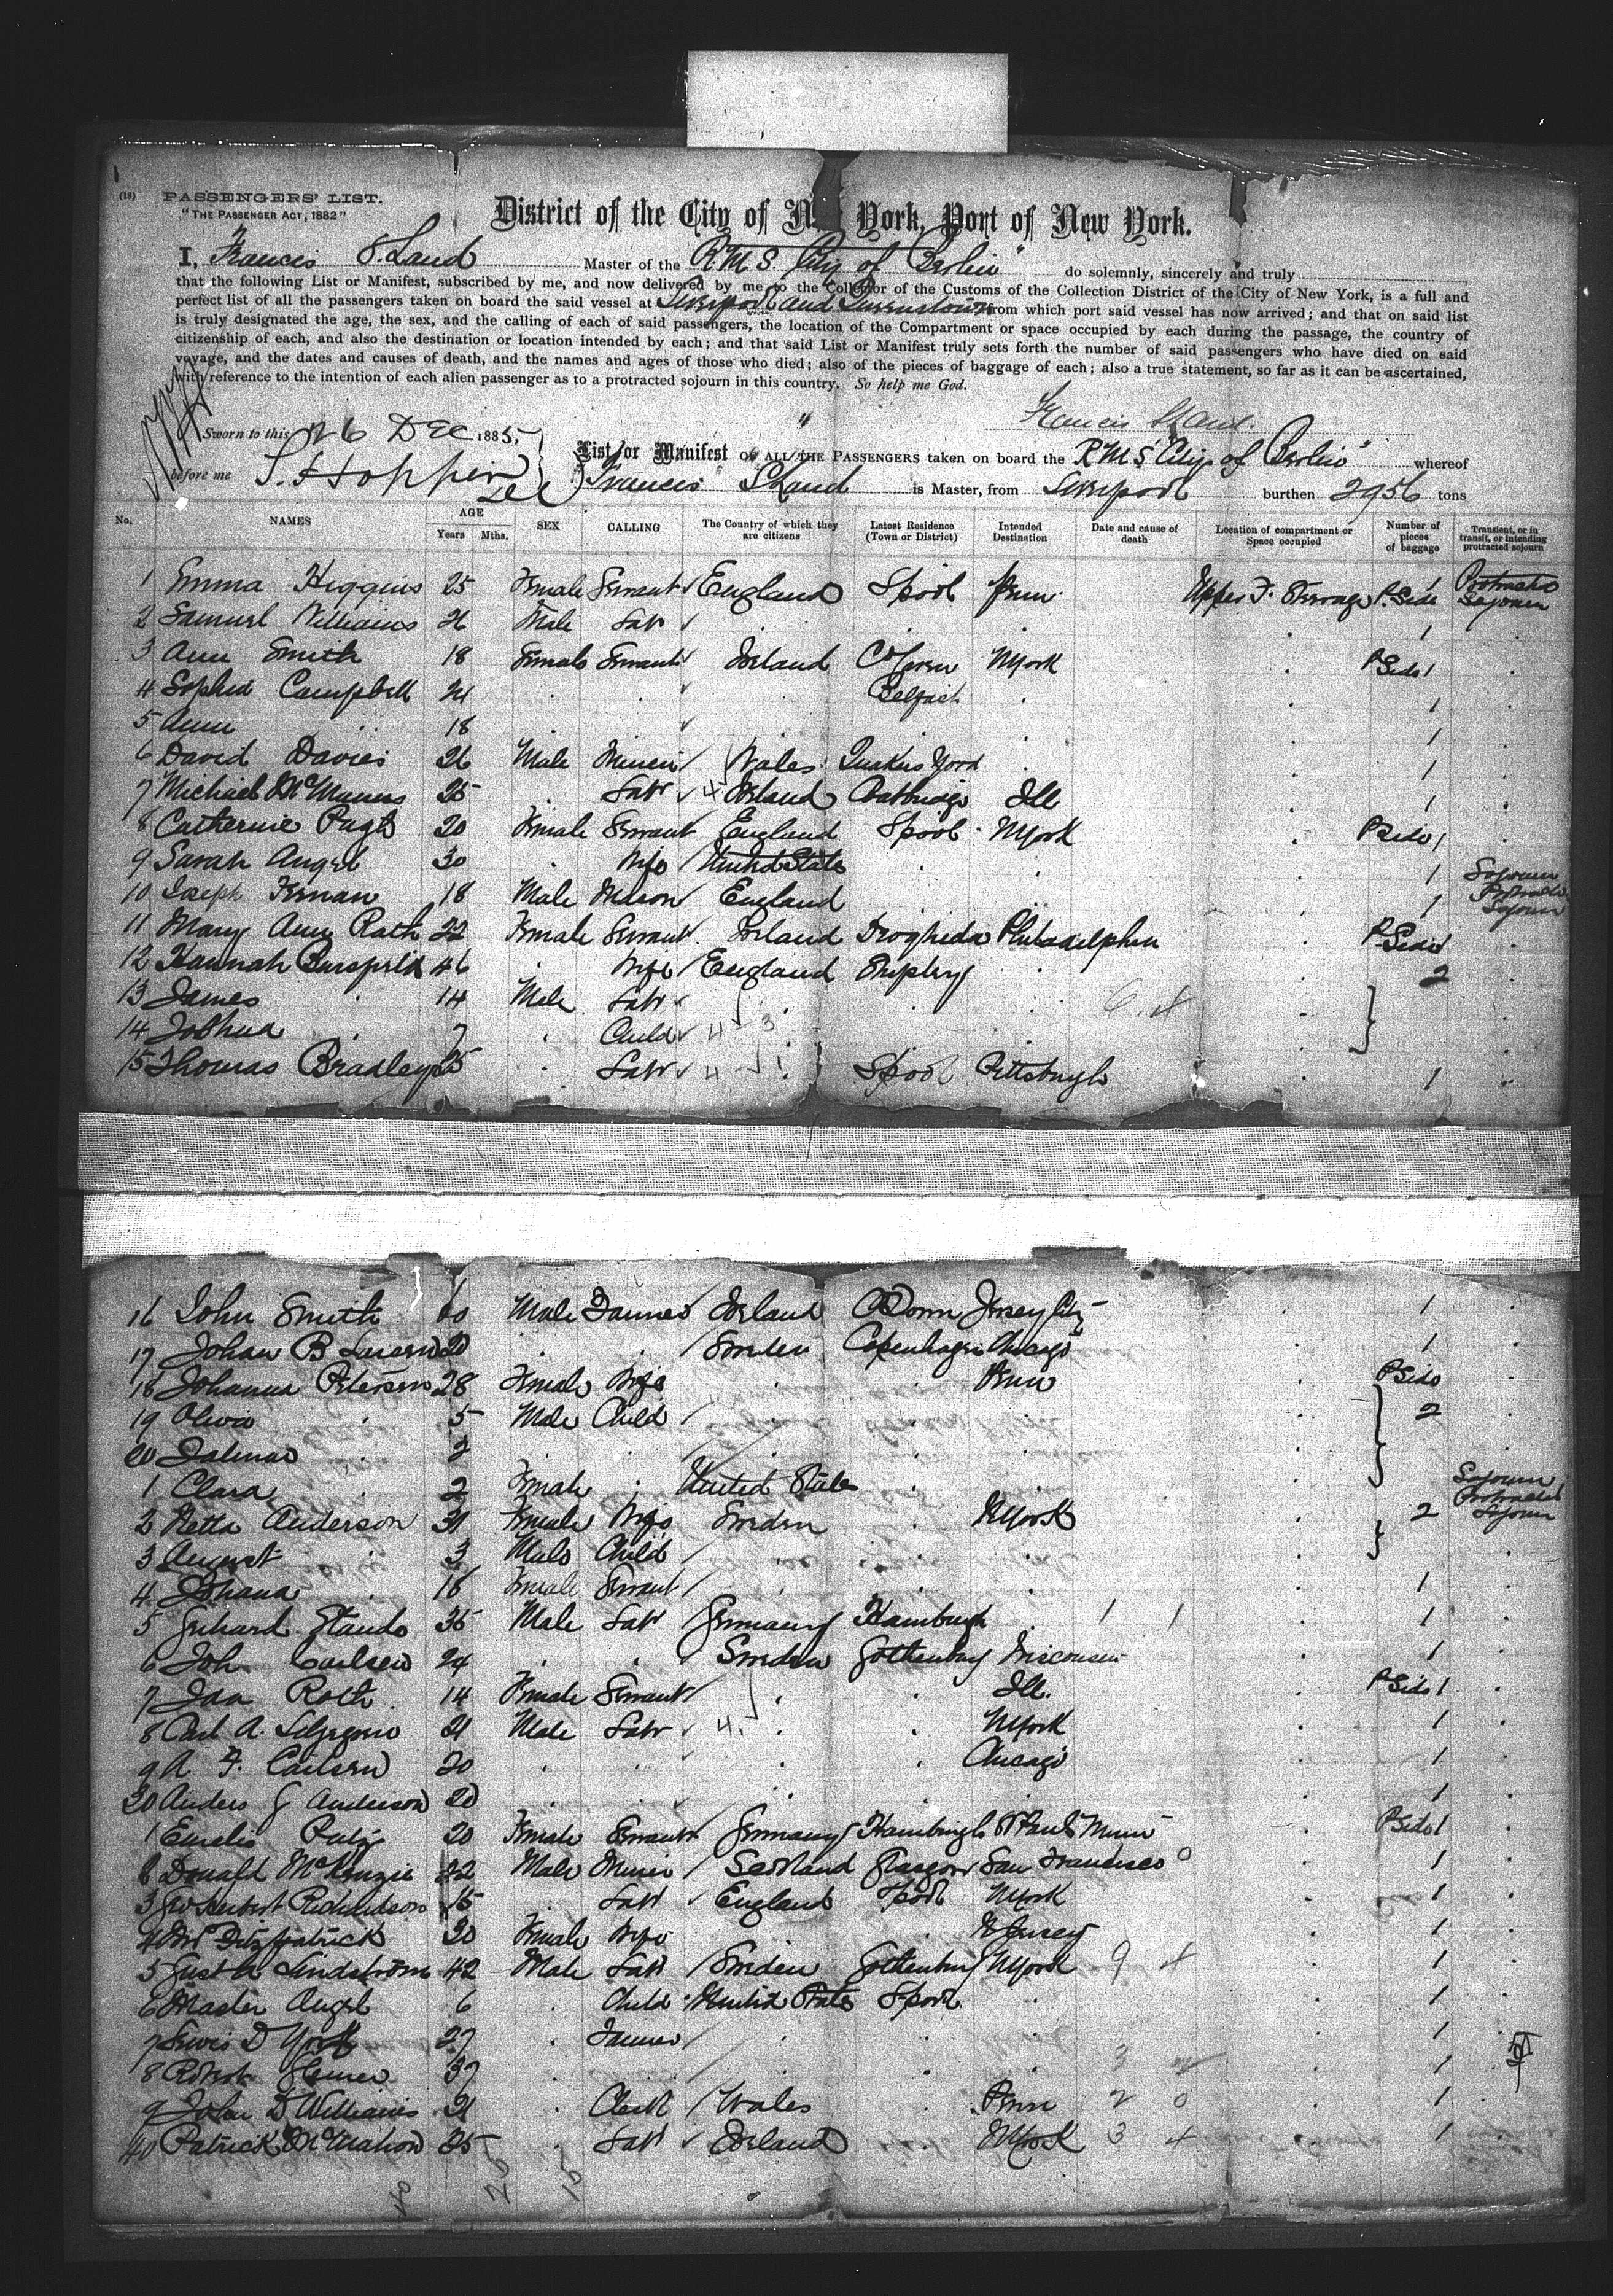 (18) PASSENGERS' LIST.
"THE PASSENGER ACT, 1882"
District of the City of New York, Port of New York.
I, Francis S. Land Master of the R.M.S. "City of Berlin" do solemnly, sincerely and truly
that the following List or Manifest, subscribed by me, and now delivered by me to the Collector of the Customs of the Collection District of the City of New York, is a full and
perfect list of all the passengers taken on board the said vessel at Liverpool and Queenstown from which port said vessel has now arrived; and that on said list
is truly designated the age, the sex, and the calling of each of said passengers, the location of the Compartment or space occupied by each during the passage, the country of
citizenship of each, and also the destination or location intended by each; and that said List or Manifest truly sets forth the number of said passengers who have died on said
voyage, and the dates and causes of death, and the names and ages of those who died; also of the pieces of baggage of each; also a true statement, so far as it can be ascertained,
with reference to the intention of each alien passenger as to a protracted sojourn in this country. So help me God.
Francis S Land.
Sworn to this 26 Dec 1885,
before me S. Hopper
List or Manifest OF ALL THE PASSENGERS taken on board the R.M.S. "City of Berlin" whereof
Francis S Land is Master, from Liverpool burthen 2956 tons
No. NAMES AGE Years Mths. SEX CALLING The Country of which they are citizens Latest Residence (Town or District) Intended Destination Date and cause of death Location of compartment or Space occupied Number of pieces of baggage Transient, or in transit, or intending protracted sojourn
1 Emma Higgins 25 Female Servant England Lpool Penn. Upper F. Steerage P. Side 1 Protracted Sojourn
2 Samuel Williams 26 Male Labr 1
3 Ann Smith 18 Female Servant Ireland Cavan NYork P Side 1
4 Sophia Campbell 21 Belfast 1
5 Ann 18 1
6 David Davies 26 Male Miner Wales Quakers Yard 1
7 Michael McManus 25 Labr 4 Ireland Coatbridge Ill 1
8 Catherine Pugh 20 Female Servant England Lpool NYork P Side 1
9 Sarah Angel 30 Wife United States 1 Sojourn
10 Joseph Kernan 18 Male Mason England 1 Protracted Sojourn
11 Mary Ann Rath 22 Female Servant Ireland Drogheda Philadelphia P Side 1
12 Hannah 46 Wife England Shipley 2
13 James 14 Male Labr 6. 4
14 Joshua 7 Child 4 3
15 Thomas Bradley 25 Labr 4 1 Lpool Pittsburgh 1
16 John Smith 60 Male Farmer Ireland Co Down Jersey City 1
17 Johan B 20 Sweden Copenhagen Chicago 1
18 Johanna Petersen 28 Female Wife Penn P Side
19 Olivia 5 Male Child 2
20 2
1 Clara 2 Female United States Sojourn
2 Netta Anderson 31 Female Wife Sweden NYork 2 Protracted Sojourn
3 August 3 Male Child
4 Johana 18 Female Servant 1
5 Gerhard Staudo 35 Male Labr Germany Hamburgh 1 1 1
6 Joh. Carlsen 24 Sweden Gothenburg Wisconsin 1
7 Ida Roth 14 Female Servant Ill. P Side 1
8 Carl A. 21 Male Labr 4. NYork 1
9 A F. Carlsen 20 Chicago 1
30 Anders G Anderson 20 1
1 Emelie 20 Female Servant Germany Hamburgh St Paul Minn P Side 1
2 Donald McKenzie 22 Male Miner Scotland Glasgow San Francisco 1
3 Herbert Richardson 15 Labr England Lpool NYork 1
4 Mrs Fitzpatrick 30 Female Wife NJersey 1
5 Gust A Lindstrom 42 Male Labr Sweden Gothenburg NYork 9 4 1
6 Master Angel 6 Child United States Lpool 1
7 Lewis D York 27 Farmer 1
8 Robert 37 3 1
9 John D Williams 21 Clerk Wales Penn 2 0 1
40 Patrick McMahon 25 Labr Ireland NYork 3 4 1